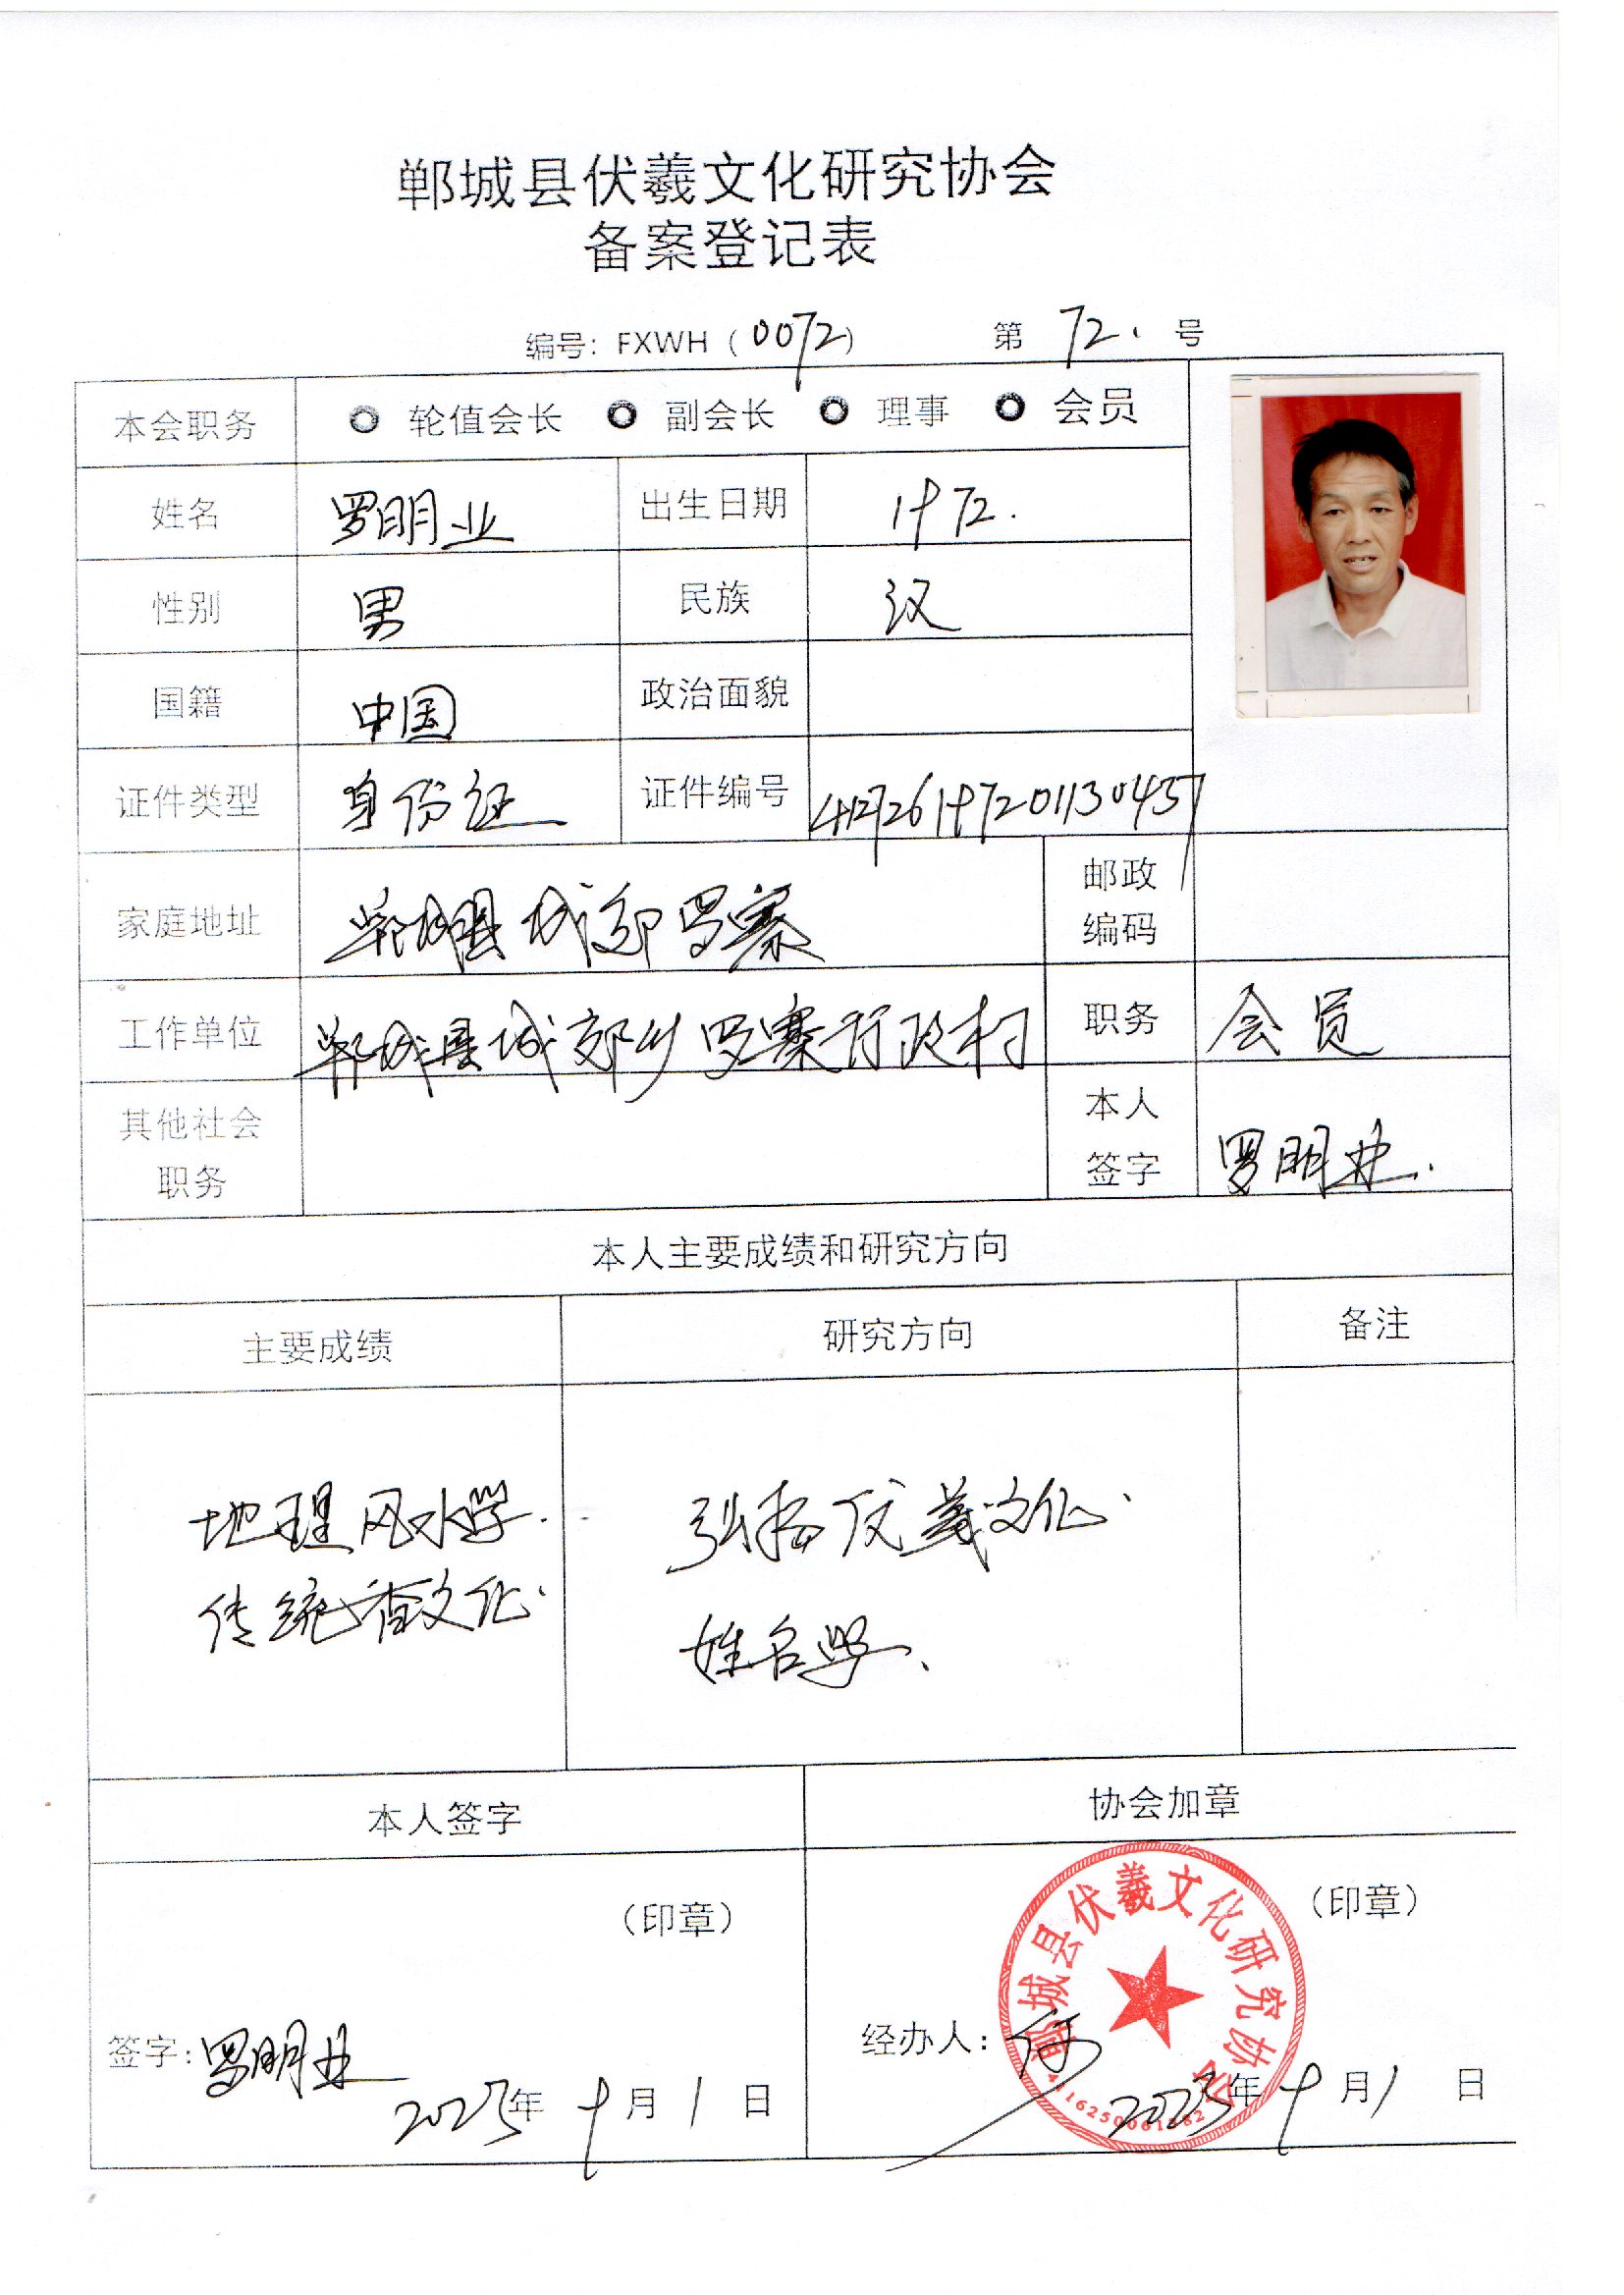 郸城县伏羲文化研究协会
备案登记表
编号：FXWH（0072） 第 72. 号
本会职务 轮值会长 副会长 理事 会员
姓名 罗明业 出生日期 1972.
性别 男 民族 汉
国籍 中国 政治面貌
证件类型 身份证 证件编号
家庭地址 郸城县城郊罗寨 邮政编码
工作单位 郸城县城郊乡罗寨行政村 职务 会员
其他社会职务 本人签字 罗明业.
本人主要成绩和研究方向
主要成绩 研究方向 备注
地理风水学. 弘扬伏羲文化.
传统 文化. 姓名学、
本人签字 协会加章
（印章） （印章）
郸城县伏羲文化研究协会
签字：罗明业 经办人：
2025年 9月 1 日 2025年 9月 1 日